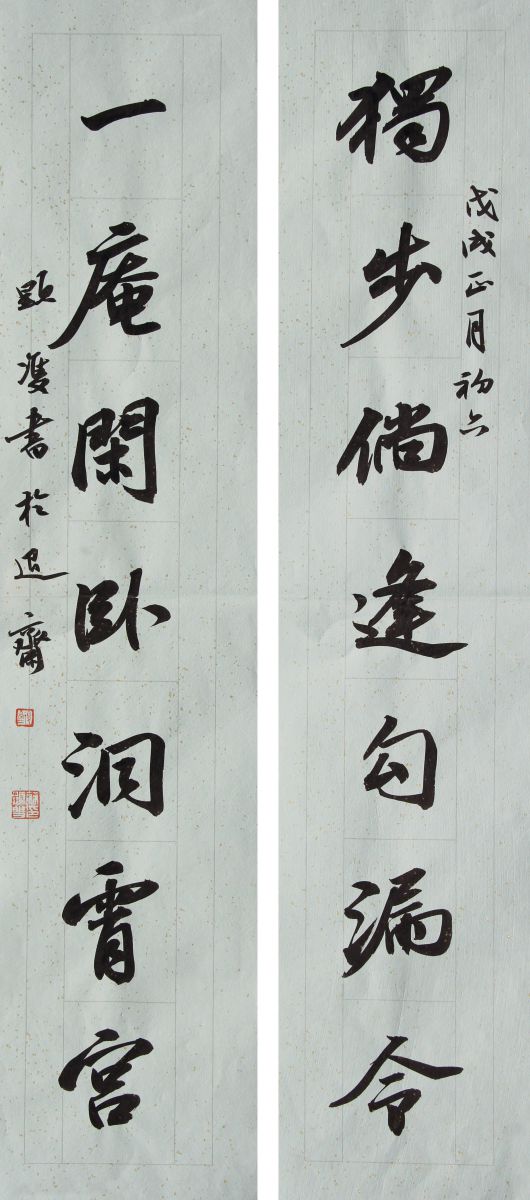 戊戌正月初六
獨步倘逢勾漏令
一庵閑卧洞霄宮
書於退齋